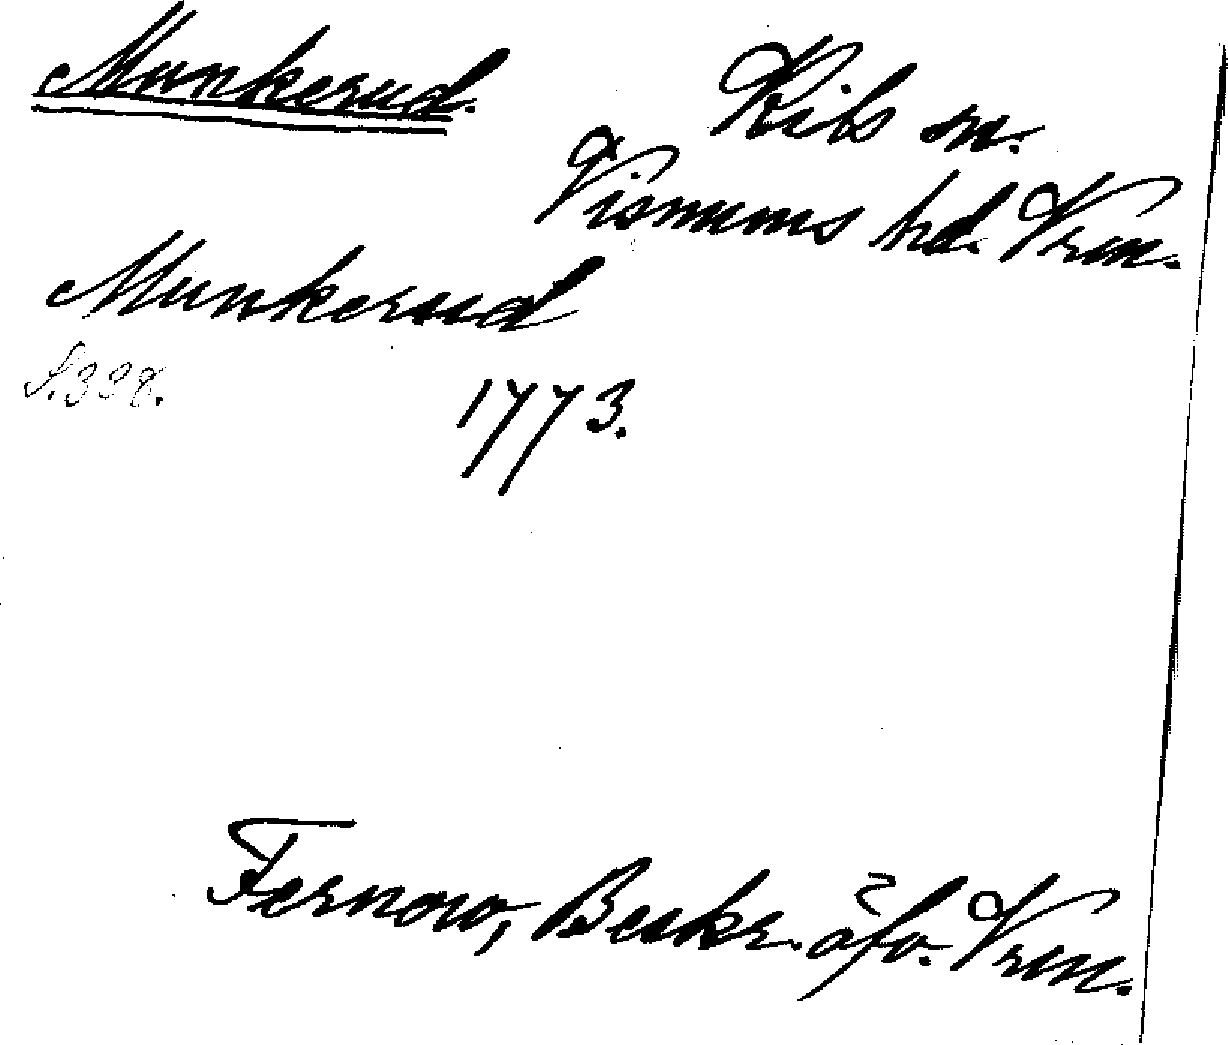 Munkerud. Kils sn.
Visnums hd. Vrm.
Munkerud
S. 338. 1773.
Fernow, Beskr. öfv. Vrm.